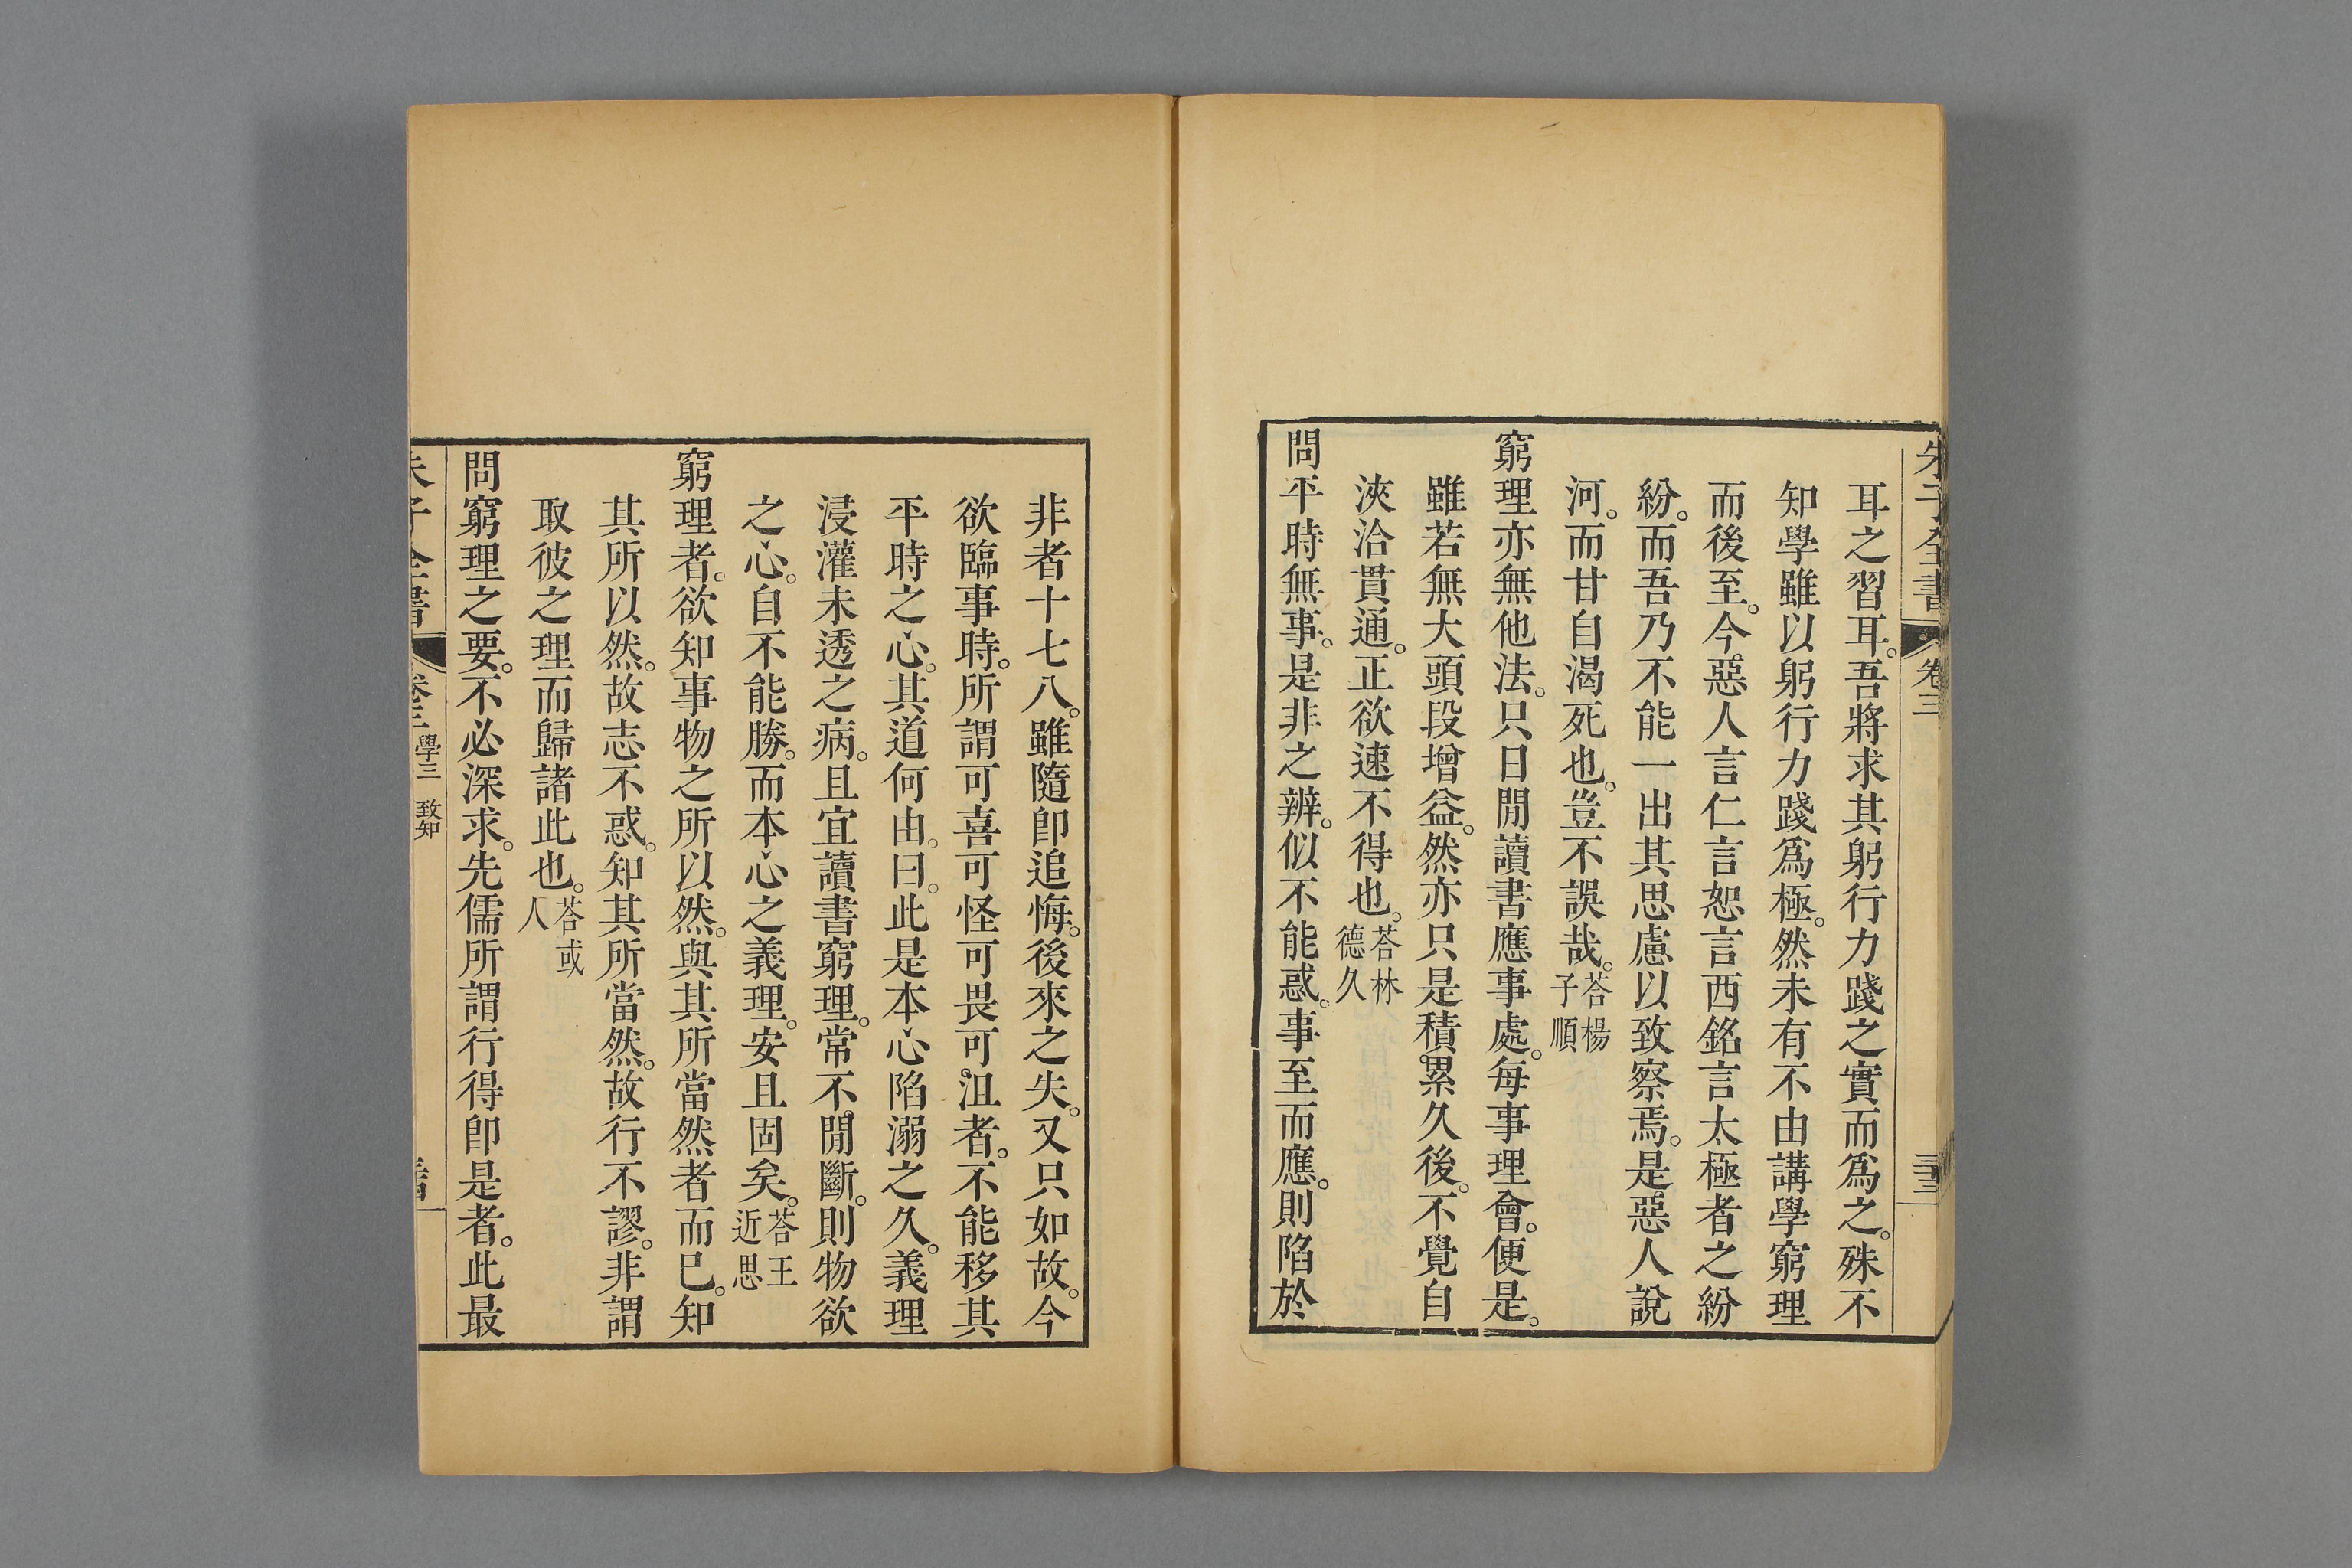 朱子全書 卷三 三十三
耳之習耳。吾將求其躬行力踐之實而爲之。殊不
知學雖以躬行力踐爲極。然未有不由講學窮理
而後至。今惡人言仁言恕言西銘言太極者之紛
紛。而吾乃不能一出其思慮以致察焉。是惡人說
河。而甘自渴死也。豈不誤哉。荅楊子順
窮理亦無他法。只日閒讀書應事處。每事理會。便是。
雖若無大頭段增益。然亦只是積累久後。不覺自
浹洽貫通。正欲速不得也。荅林德久
問平時無事。是非之辨。似不能惑。事至而應。則陷於
非者十七八。雖隨卽追悔。後來之失。又只如故。今
欲臨事時。所謂可喜可怪可畏可沮者。不能移其
平時之心。其道何由。曰。此是本心陷溺之久。義理
浸灌未透之病。且宜讀書窮理。常不閒斷。則物欲
之心。自不能勝。而本心之義理。安且固矣。荅王近思
窮理者。欲知事物之所以然。與其所當然者而已。知
其所以然。故志不惑。知其所當然。故行不謬。非謂
取彼之理而歸諸此也。荅或人
問窮理之要。不必深求。先儒所謂行得卽是者。此最
朱子全書 卷三 學三 致知